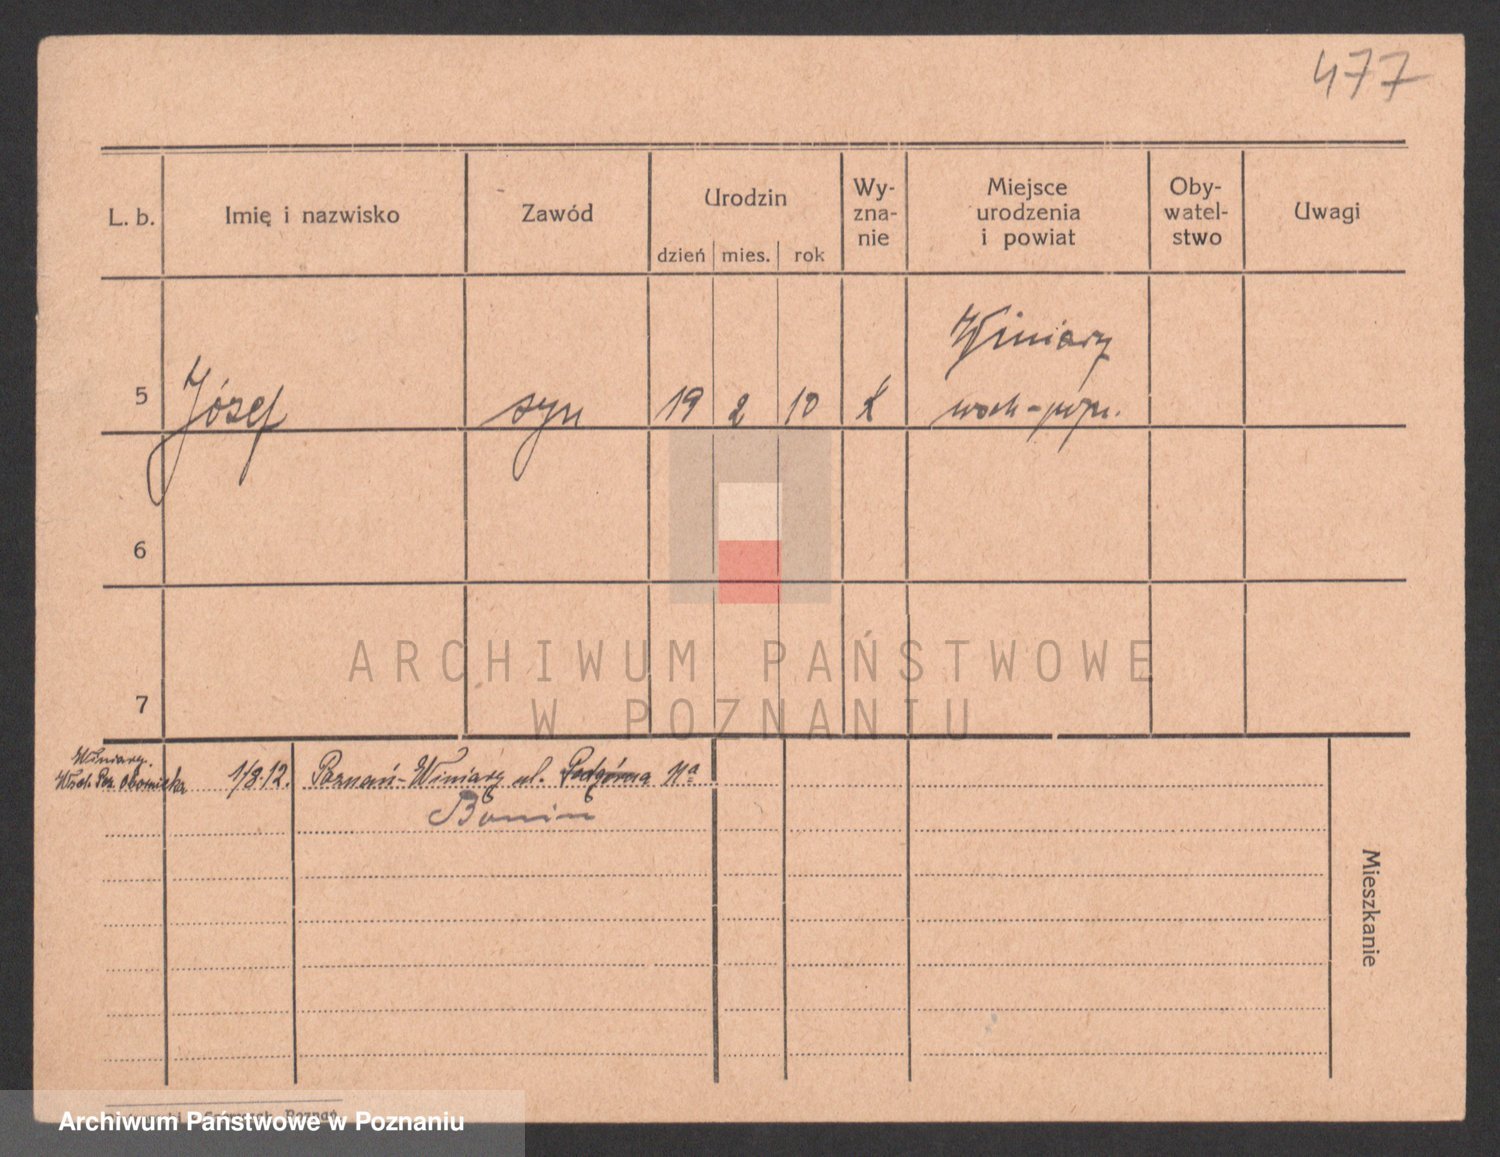 477
L. b. Imię i nazwisko Zawód Urodzin dzień mies. rok Wy-zna-nie Miejsce urodzenia i powiat Oby-watel-stwo Uwagi
Winiary
5 Józef syn 19 2 10 k
6
7
ARCHIWUM PAŃSTWOWE
W POZNANIU
Winiary.
Wsch. Poz. Obornicka 1/8.12. Poznań-Winiary ul. Podgórna 11a
Bonin
Mieszkanie
Poznań
Archiwum Państwowe w Poznaniu